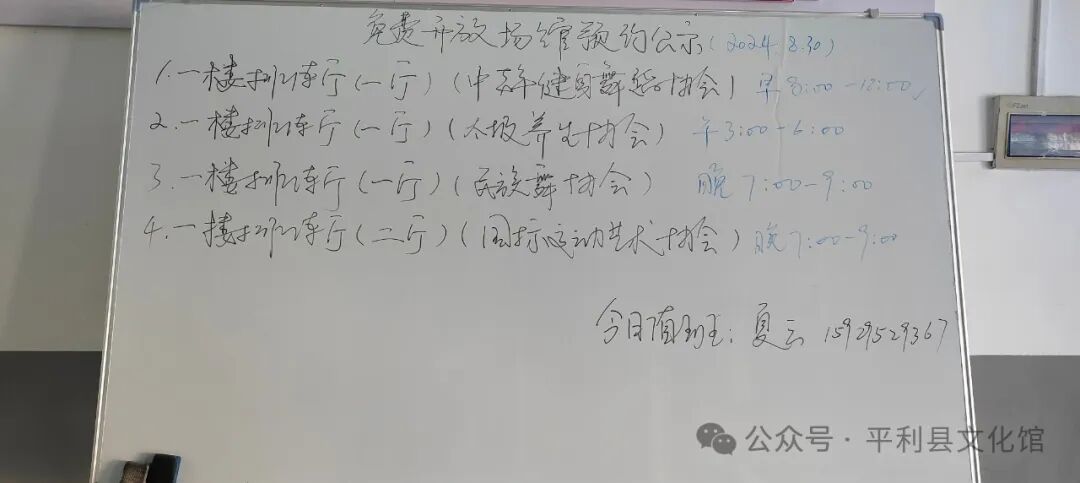 免费开放场馆预约公示(2024.8.30)
1.一楼排练厅(一厅)(中老年健身舞蹈协会)早8:00-12:00
2.一楼排练厅(一厅)(太极养生协会) 午3:00-6:00
3.一楼排练厅(一厅)(民族舞协会) 晚7:00-9:00
4.一楼排练厅(二厅)(国标运动艺术协会)晚7:00-9:00
今日值班:夏云 15929529367
公众号·平利县文化馆